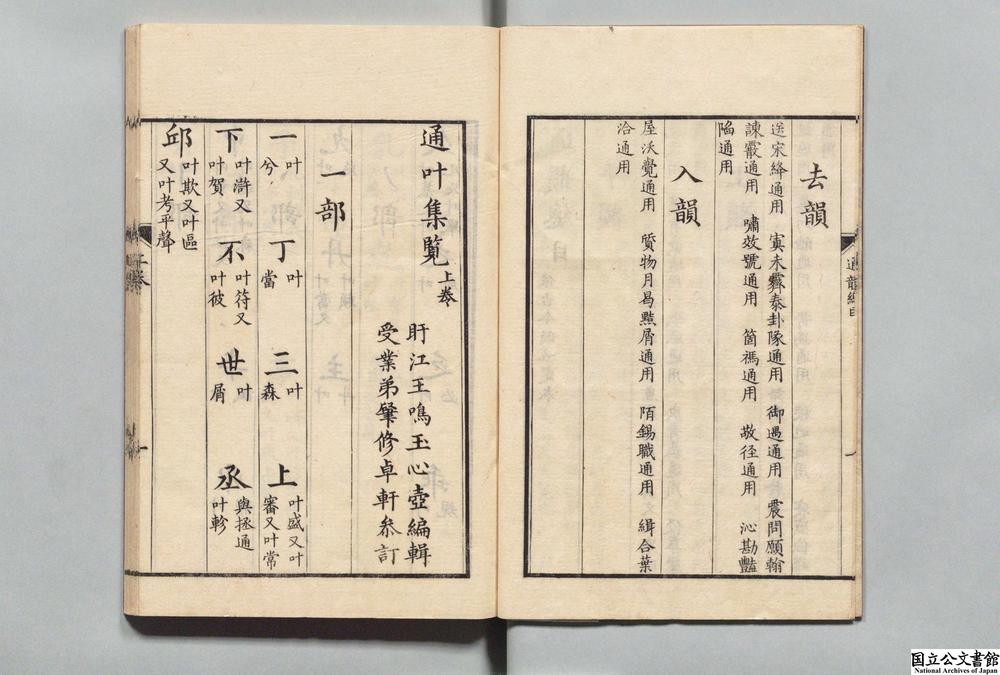 去韻
送宋絳通用 寘未霽泰卦隊通用 御遇通用 震問願翰
諫霰通用 嘯效號通用 箇禡通用 敬径通用 沁勘豔
陷通用
入韻
屋沃覺通用 質物月曷黠屑通用 陌錫職通用 緝合葉
洽通用
通韻總目
通叶集覽上卷
盱江王鳴玉心壺編輯
受業弟肇修卓軒叅訂
一部
一叶兮 丁叶當 三叶森 上叶盛又叶審又叶常
下叶滸又叶賀 不叶符又叶彼 世叶屑 丞與拯通叶軫
邱叶欺又叶區又叶考平聲
上卷
一
国立公文書館
National Archives of Japan